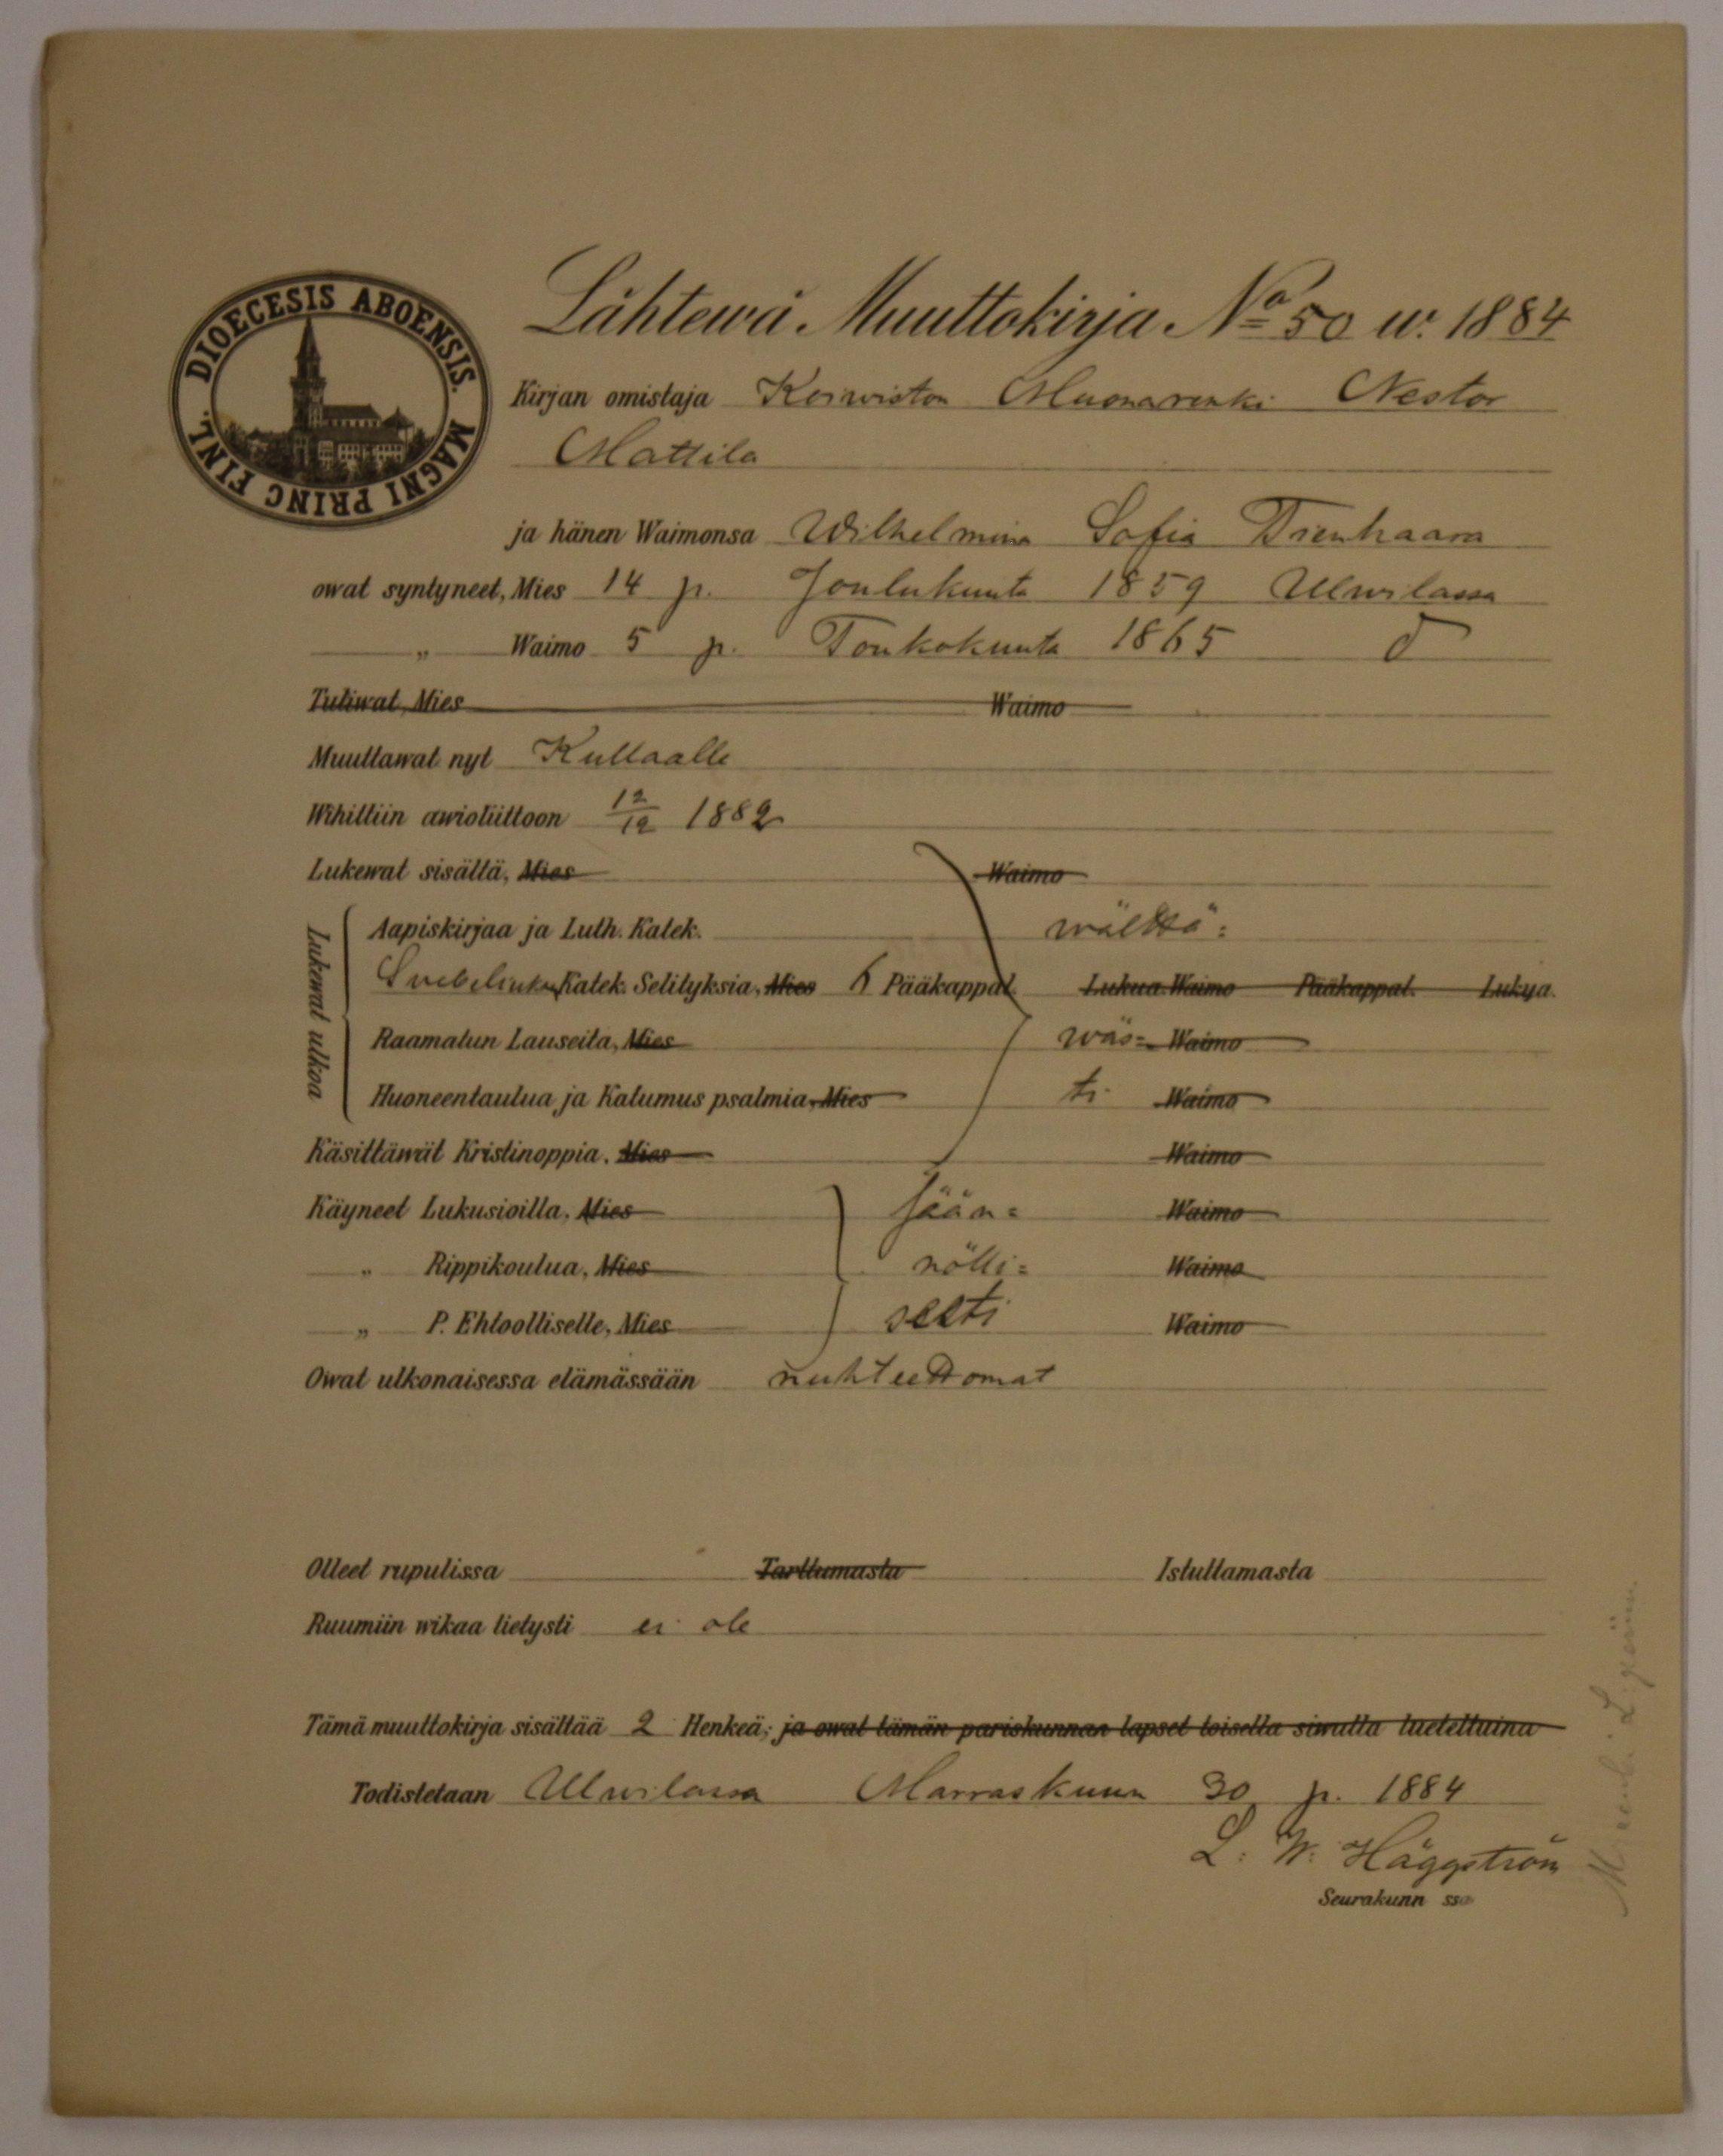 DIOECESIS ABOENSIS. MAGNI PRINC FINL.
Lähtewä Muuttokirja No 50 w. 1884
Kirjan omistaja Koiwiston Muonarenki Nestor
Mattila
ja hänen Waimonsa Wilhelmina Sofia Tienhaara
owat syntyneet, Mies 14 p. Joulukuuta 1859 Ulwilassa
„ Waimo 5 p. Toukokuuta 1865 d
Tuliwat, Mies Waimo
Muuttawat nyt Kullaalle
Wihittiin awioliittoon 12/12 1882
Lukewat sisältä, Mies Waimo
Lukewat ulkoa
Aapiskirjaa ja Luth. Katek. wälttä=
Katek. Selityksiä, Mies 6 Pääkappal. Lukua Waimo Pääkappal. Lukya.
Raamatun Lauseita, Mies wäs= Waimo
Huoneentaulua ja Katumus psalmia, Mies ti Waimo
Käsittäwät Kristinoppia. Mies Waimo
Käyneet Lukusioilla, Mies Sään= Waimo
„ Rippikoulua, Mies nölli= Waimo
„ P. Ehtoolliselle, Mies sesti Waimo
Owat ulkonaisessa elämässään nuhteettomat
Olleet rupulissa Tarttumasta Istuttamasta
Ruumiin wikaa tietysti ei ole
Tämä muuttokirja sisältää 2 Henkeä; ja owat tämän pariskunnan lapset toisella siwulla lueteltuina
Todistetaan Ulwilassa Marraskuun 30 p. 1884
L. W. Häggström
Seurakunn ssa